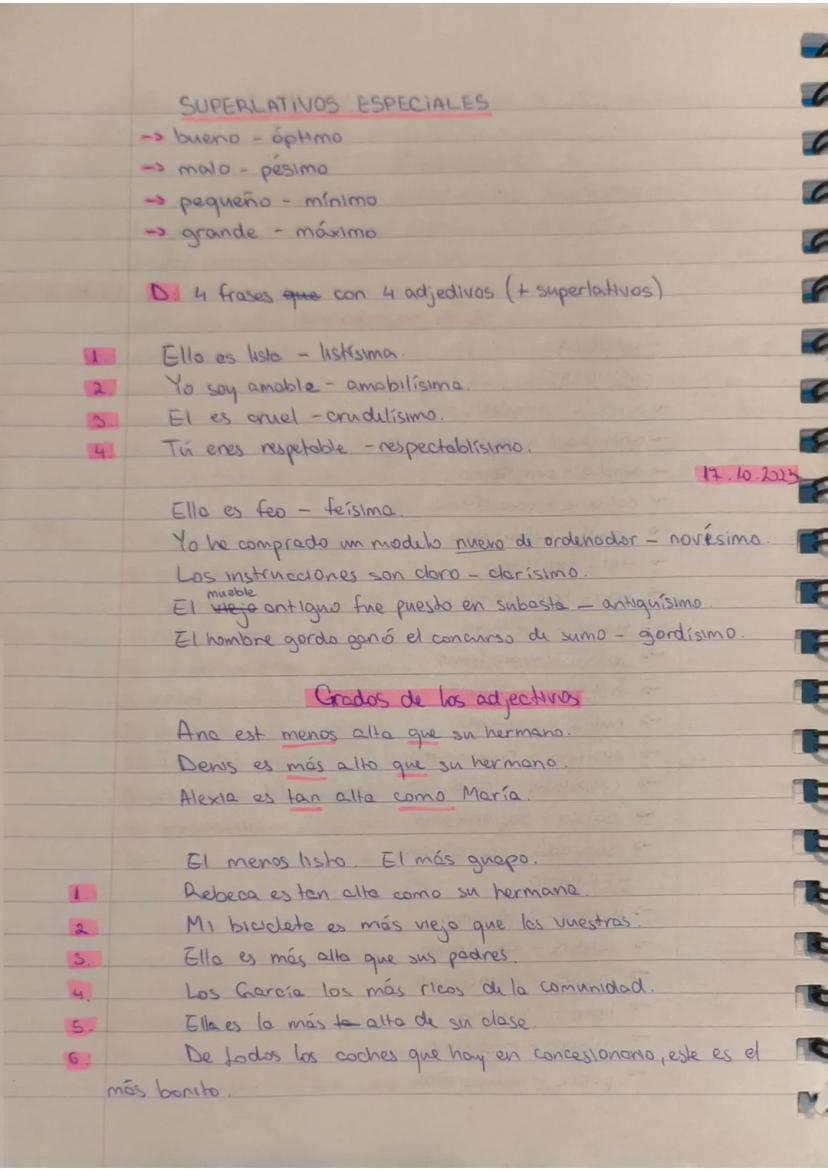 SUPERLATIVOS ESPECIALES
→ bueno - óptimo
→ malo - pésimo
→ pequeño - mínimo
→ grande - máximo
D. 4 frases que con 4 adjedivos (+ superlativos)
1. Ella es lista - listísima.
2. Yo soy amable - amabilísima.
3. El es cruel - crudelísimo.
4. Tú eres respetable - respectablísimo.
17.10.2023
Ella es fea - feísima.
Yo he comprado un modelo nuevo de ordenador - novésimo.
Las instrucciones son claro - clarísimo.
mueble
El viejo antiguo fue puesto en subasta - antiguísimo.
El hombre gordo ganó el concurso de sumo - gordísimo.
Grados de los adjectivos
Ana est menos alta que su hermano.
Denis es más alto que su hermano.
Alexia es tan alta como María.
El menos listo. El más guapo.
1. Rebeca es tan alta como su hermana.
2. Mi bicicleta es más vieja que las vuestras.
3. Ella es más alta que sus padres.
4. Los García los más ricos de la comunidad.
5. Ella es la más ta alta de su clase.
6. De todos los coches que hay en concesionario, este es el
más bonito.